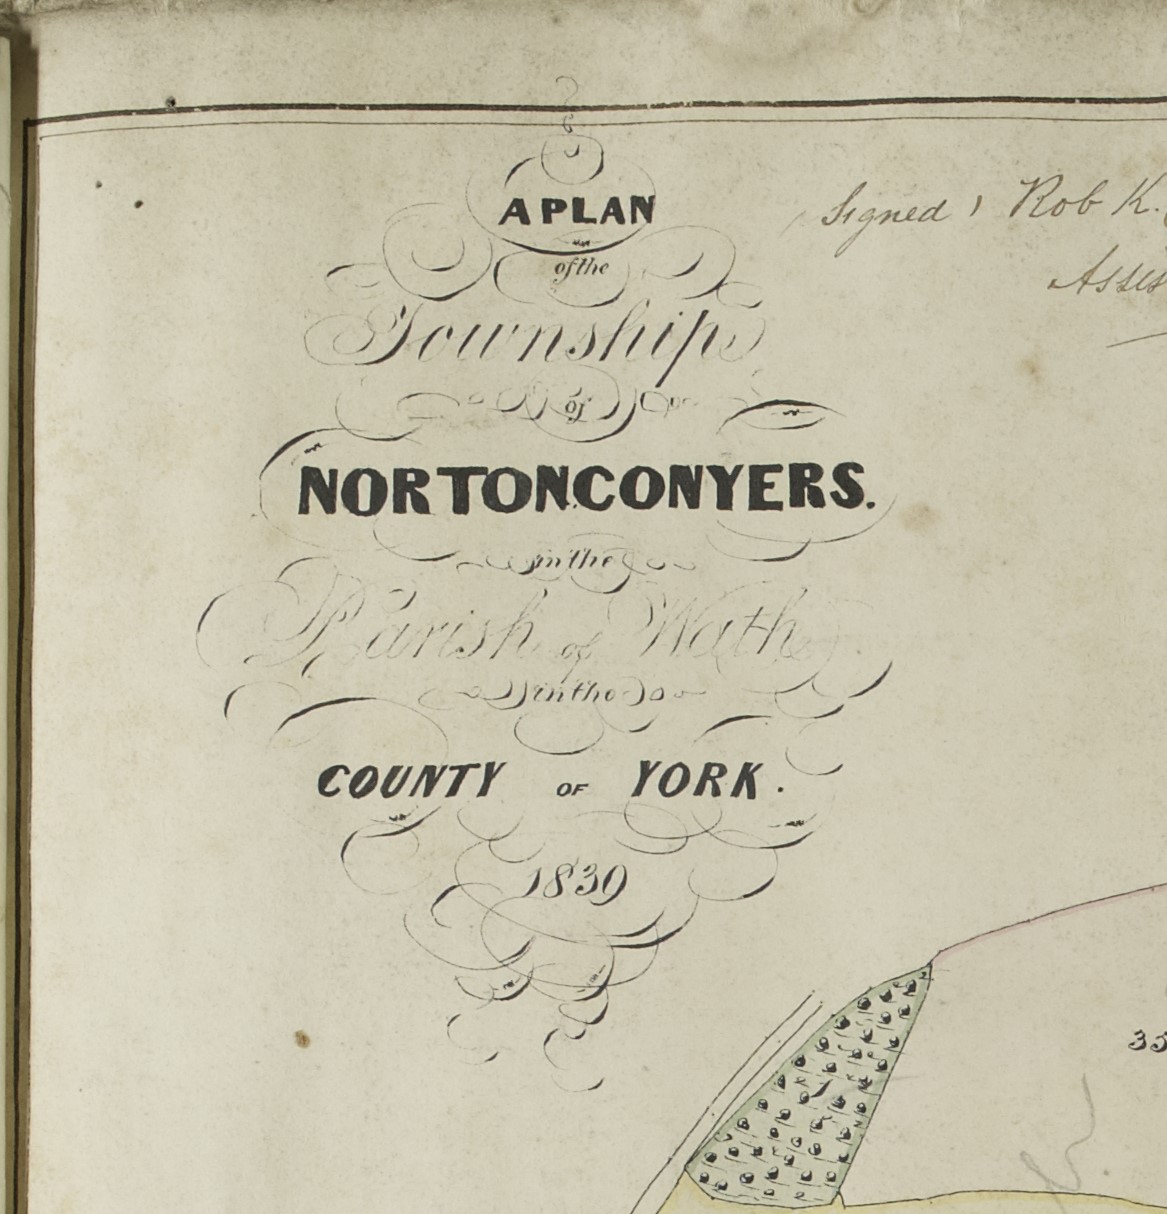 A PLAN
of the
Township
of
NORTONCONYERS.
in the
Parish of Wath
in the
COUNTY OF YORK.
1839
Signed, Rob K.
35